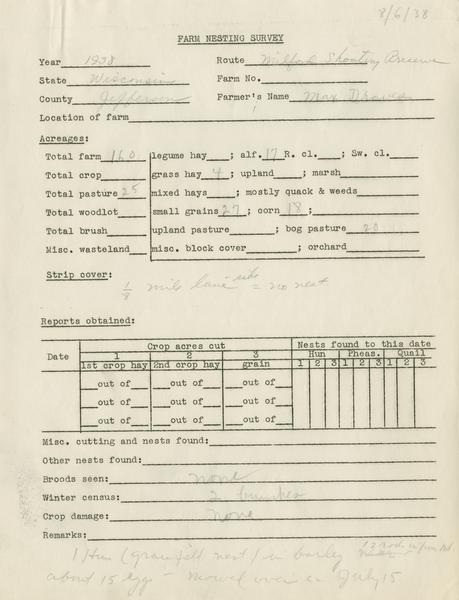 8/6/38
FARM NESTING SURVEY
Year 1938 Route Milford Shooting Preserve
State Wisconsin Farm No.
County Jefferson Farmer's Name Max Draves
Location of farm
Acreages:
Total farm 160 legume hay ; alf. 17 R. cl. ; Sw. cl.
Total crop grass hay 4 ; upland ; marsh
Total pasture 25 mixed hays ; mostly quack & weeds
Total woodlot small grains 27 ; corn 18 ;
Total brush upland pasture ; bog pasture 20
Misc. wasteland misc. block cover ; orchard
Strip cover:
1/8 mile lane = no nest
Reports obtained:
Crop acres cut Nests found to this date
Date 1 2 3 Hun Pheas. Quail
1st crop hay 2nd crop hay grain 1 2 3 1 2 3 1 2 3
out of out of out of
out of out of out of
out of out of out of
Misc. cutting and nests found:
Other nests found:
Broods seen: none
Winter census: 2 bunches
Crop damage: none
Remarks:
1 Hun (grainfield nest) in barley
about 15 eggs - mowed over on July 15